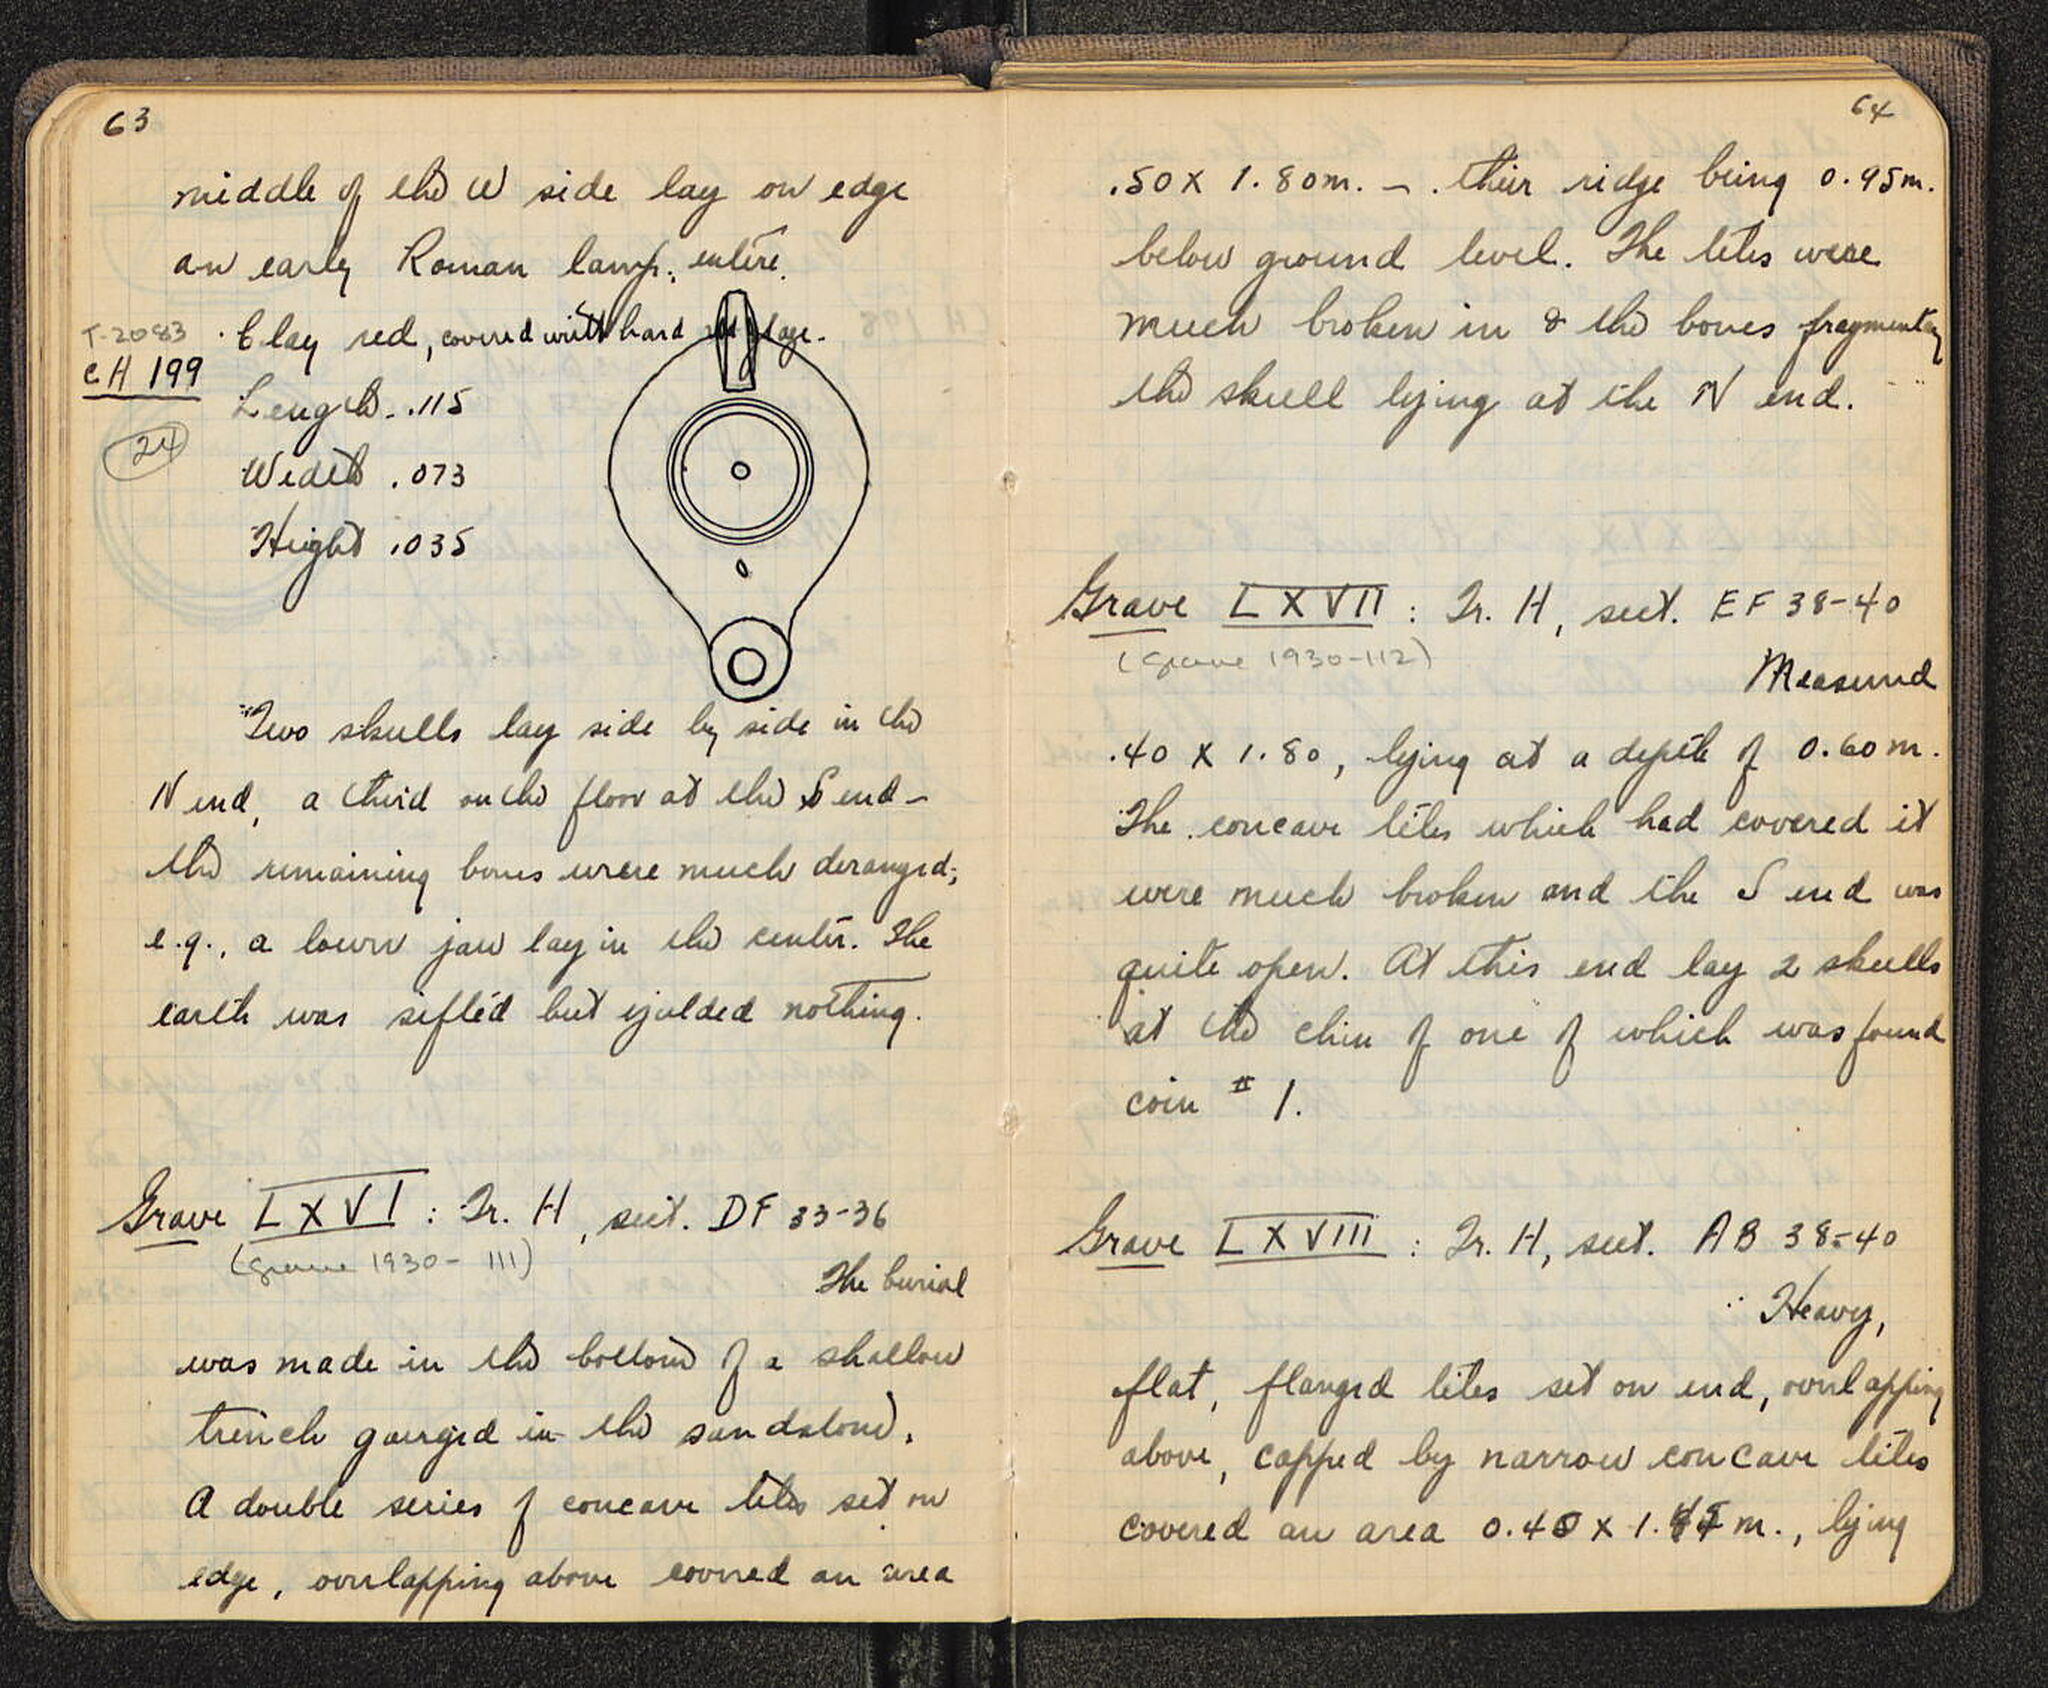 63
middle of the W side lay on edge
an early Roman lamp; entire.
T-2083
Clay red, covered with hard red glaze.
CH 199
Length - .115
24
Width .073
Height .035
Two skulls lay side by side in the
N end, a third on the floor at the S end –
the remaining bones were much deranged;
e.g., a lower jaw lay in the center. The
earth was sifted but yielded nothing.
Grave LXVI : Tr. H, sect. DF 33-36
(Grave 1930 - 111)
The burial
was made in the bottom of a shallow
trench gouged in the sandstone.
A double series of concave tiles set on
edge, overlapping above covered an area
64
.50 x 1.80 m. – their ridge being 0.95 m.
below ground level. The tiles were
much broken in & the bones fragmentary
the skull lying at the N end.
Grave LXVII : Tr. H, sect. EF 38-40
(Grave 1930-112)
Measured
.40 x 1.80, lying at a depth of 0.60 m.
The concave tiles which had covered it
were much broken and the S end was
quite open. At this end lay 2 skulls
at the chin of one of which was found
coin # 1.
Grave LXVIII : Tr. H, sect. AB 38-40
Heavy,
flat, flanged tiles set on end, overlapping
above, capped by narrow concave tiles
covered an area 0.45 x m., lying